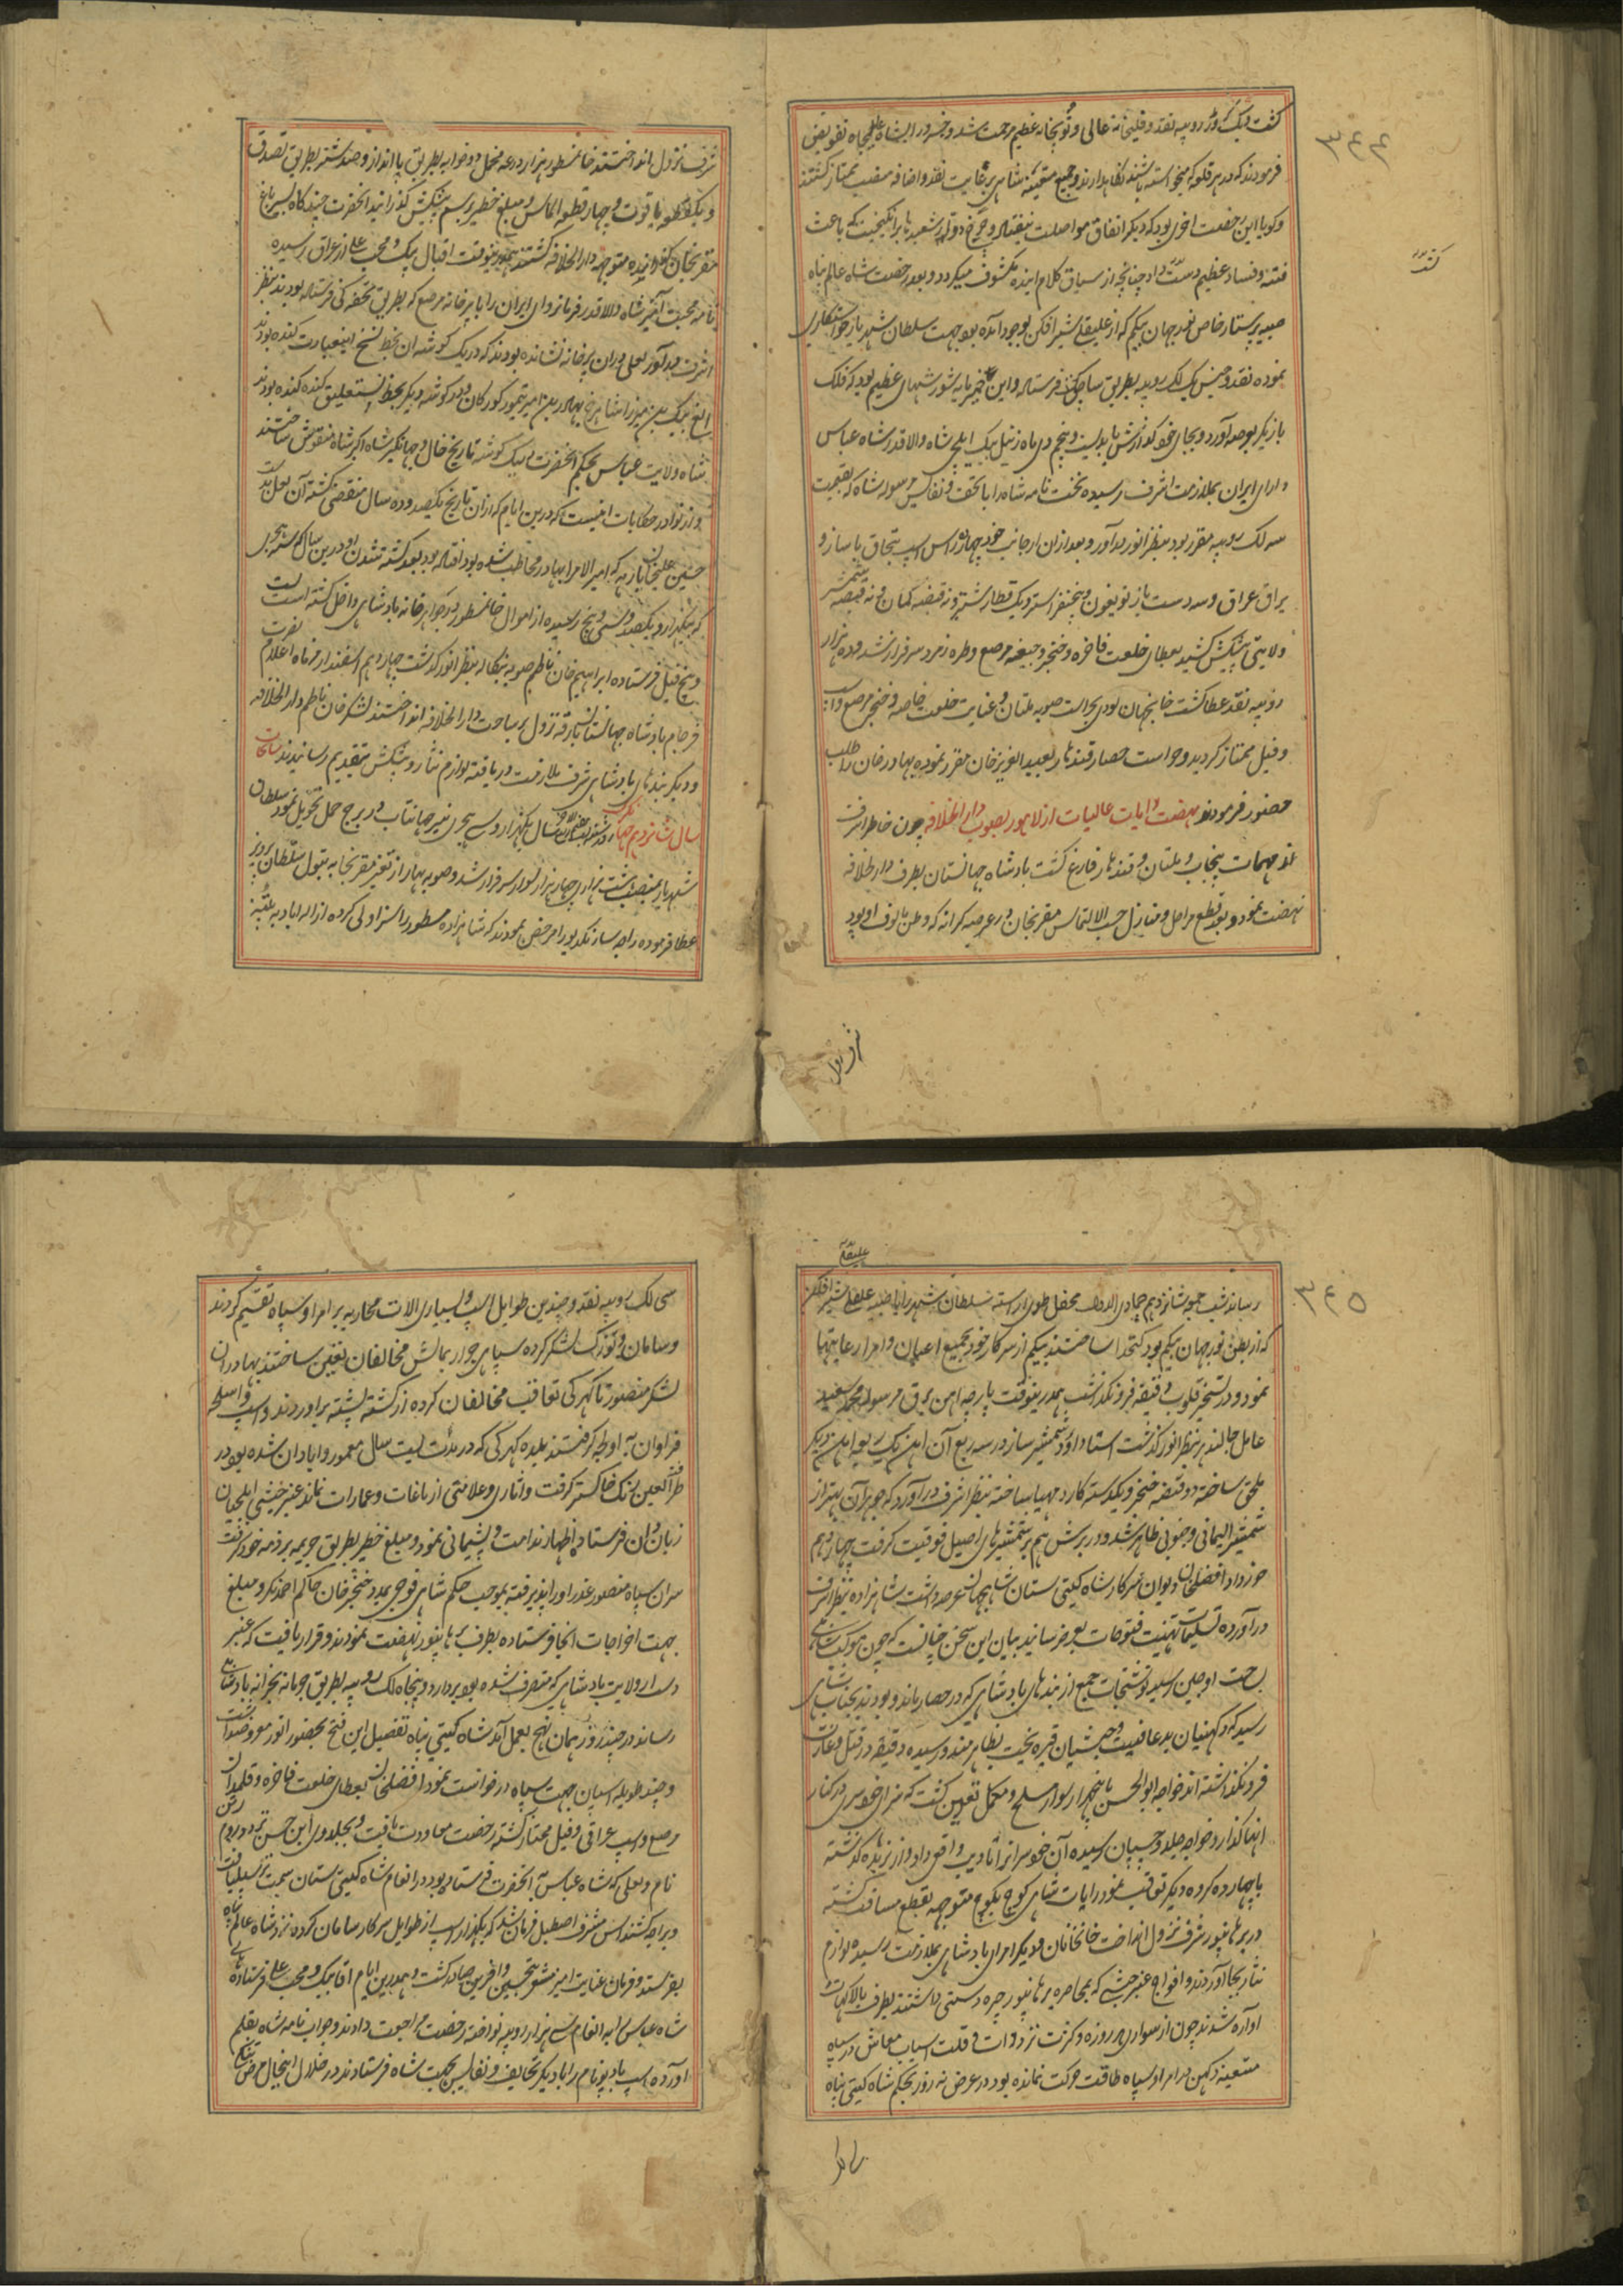 ٣٤٤
کفت و یک کرور روپیه نقد و فیلخانه عالی و توپخانه عظیم مرحمت شد و خسرو را بشاه علیجاه تفویض
فرمودند که در هر قلعه که میخواسته باشند نگاهدارند و جمیع متعینه شاهی برعایت نقد و اضافه منصب ممتاز کشتند
و کویا این رخصت اخری بود که دیکر اتفاق مواصلت نیفتاد و چرخ دولتی شعبدها برانکیخت که باعث
فتنه و فساد عظیم دست داد چنانچه از سیاق کلام اینده مکشوف میکردد و بعد رخصت شاه عالم پناه
صبیه پرستار خاص نورجهان بیکم که از علیقلی شیرافکن بوجود آمده بود بجهت سلطان شهریار خواستکاری
نموده نقد و جنس یک لک روپیه بطریق ساچق فرستاد و این خمیرمایه شورشهای عظیم بود که فلک
بازیکر بعرصه آورد و بجای خود گذارش یابد بیست و پنجم دی ماه زنبیل بیک ایلچی شاه والاقدر شاه عباس
دارای ایران بملازمت اشرف رسیده نخست نامه شاه را با تحف و نفایس مرسوله شاه که بقیمت
سه لک روپیه مقرر بود بنظر انور درآورد و بعد ازان از جانب خود چهارده راس اسپ تبچاق با ساز و
یراق عراق و سه دست باز تویغون و پنج نفر استر و یک قطار شتر و نه قبضه کمان و نه قبضه شمشیر
ولایتی پیشکش کشید بعطای خلعت فاخره و خنجر و جیغه مرصع و طره زمرد سرفراز شد و ده هزار
روپیه نقد عطا کشت خانجهان لودی بحراست صوبه ملتان و عنایت خلعت خاصه و خنجر مرصع و اسپ
و فیل ممتاز کردید و حراست حصار قندهار بعبدالعزیز خان مقرر نموده بهادر خان را طلب
حضور فرمودند نهضت رایات عالیات از لاهور بصوب دارالخلافه چون خاطر اشرف
از مهمات پنجاب و ملتان و قندهار فارغ کشت بادشاه جهانستان بطرف دارالخلافه
نهضت نمود و بعد قطع مراحل و منازل حسب الالتماس مقربخان در عرصه کرانه که وطن مالوف او بود
شرف نزول
شرف نزول انداختند خانمسطور هزار درعه مخمل و دوخوابه بطریق پاانداز و صد شتر بطریق تصدق
و یک قطعه یاقوت و چهار قطعه الماس و مبلغ خطیر برسم پیشکش گذرانید انحضرت چندکاه بسیر باغ
مقربخان گذرانیده متوجه دارالخلافه کشتند همدرینوقت اقبال بیک و محب علی از عراق رسیده
نامه محبت آمیز شاه والاقدر فرمانروای ایران را با پرخانه مرصع که بطریق تحفکی فرستاده بودند بنظر
اشرف درآورد لعلی دران پرخانه نشانده بودند که در یک کوشه ان بخط نسخ اینعبارت کنده بود
الغ بیک بن میرزا شاهرخ بهادر بن امیر تیمور کورکان و در کوشه دیکر بخط نستعلیق کنده کنده بود بنده
شاه ولایت عباس بحکم انحضرت در یک کوشه تاریخ حال و جهانکیر شاه اکبرشاه منقوش ساختند
و از نوادر حکایات اینست که درین ایام که ازان تاریخ یکصد و ده سال منقضی کشته آن لعل بدست
حسین علیخان بارهه که امیرالامرا بهادر مخاطب شده بود افتاده بود بعد کشته شدن او درین سال که سنه هجری
که یکهزار و یکصد و سی و پنج رسیده از اموال خانمسطور در جواهرخانه بادشاهی داخل کشته است
و پنج فیل فرستاده ابراهیم خان ناظم صوبه بنکاله بنظر انور کذشت چهاردهم اسفندارمزماه اعلام نصرت
فرجام بادشاه جهانستان بارقه نزول بر ساحت دارالخلافه انداختند لشکرخان ناظم دارالخلافه
و دیکر بندهای بادشاهی شرف ملازمت دریافته لوازم نثار و پیشکش بتقدیم رسانیدند سانحات
سال شانزدهم جهانکیری سال یکهزار و سی هجری نیر جهانتاب در برج حمل تحویل نمود سلطان
شهریار بمنصب هشت هزاری چهار هزار سوار سرفراز شد و صوبه بهار از تغیر مقربخان به تیول سلطان پرویز
عطا فرموده راجه سارنکدیو را مرخص نمودند که شاهزاده مسطور را سزاولی کرده از اله اباد به پتنه
٣٤٥
علیقلی
رساند شب جمعه شانزدهم جمادی الاول محفل طوی اراسته سلطان شهریار را با صبیه علیقلی شیرافکن
که از بطن نورجهان بیکم بود کتخدا ساختند بیکم از سرکار خود بجمیع اعیان و امرا رعایتها
نمود و در تسخیر قلوب دقیقه فرونکذاشت همدرینوقت پارچه اهن برق مرسوله محمد سعید
عامل جالندر بنظر انور کذشت استاد داود شمشیرساز در سه ربع آن اهن یک ربع اهن دیکر
ملحق ساخته دو قبضه خنجر و یکدسته کارد مهیا ساخته بنظر اشرف درآورد که جوهر آن بهتر از
شمشیر الیمانی و جنوبی ظاهر شد و در برش هم بر شمشیرهای اصیل فوقیت کرفت چهاردهم
خورداد افضلخان دیوان سرکار شاه کیتی ستان شاهجهان عرضداشت شاهزاده بنظر اشرف
درآورده تسلیمات تهنیت فتوحات بعرض رسانید بیان این سخن چنانست که چون موکب شاهی
بساحت اوجین رسید نوشتجات جمع از بندهای بادشاهی که در حصار ماندو بودند بجناب شاهی
رسید که دکهنیان بدعاقبت و حبشیان تیره بخت بظاهر مندو رسیده دقیقه در قتل و غارت
فرونکذاشته اند خواجه ابوالحسن با پنجهزار سوار مسلح و مکمل تعین کشت که سزای خودسری در کنار
انها کذارد خواجه جلد و چسپان رسیده آن خودسران را تادیب واقعی داد و از نربده کذشته
با چهارده کروه دیکر تعاقب نمود رایات شاهی کوچ بکوچ متوجه بقطع مسافت کشته
در برهانپور شرف نزول انداخت خانخانان و دیکر امرای بادشاهی بملازمت رسیده لوازم
نثار بجا آوردند و افواج عنبر حبشی که بمحاصره برهانپور چیره دستی داشتند بطرف بالاکهات
اواره شدند چون از سواری هر روزه و کثرت ترددات و قلت اسباب معاش در سپاه
متعینه دکهن در امرا و سپاه طاقت حرکت نمانده بود در عرض نه روز بحکم شاه کیتی پناه
سی لک
سی لک روپیه نقد و چندین طوایل اسپ و بسیاری الات محاربه بر امرا و سپاه تقسیم کردند
و سامان و توزک لشکر کرده سپاهی جرار بمالش مخالفان تعین ساختند بهادران
لشکر منصور تا کهرکی تعاقب مخالفان کرده از کشته پشته براوردند و اسپ و اسلحه
فراوان به اولجه کرفتند بلده کهرکی که در مدت بیست سال معمور و ابادان شده بود در
طرفة العین رنک خاکستر کرفت و اثاری و علامتی از باغات و عمارات نماند عنبر حبشی ایلچیان
زبان دان فرستاده اظهار ندامت و پشیمانی نمود و مبلغ خطیر بطریق جریمه بر ذمه خود کرفت
سران سپاه منصور عذر او را پذیرفته بموجب حکم شاهی فوجی بمدد خنجرخان حاکم احمدنکر و مبلغ
بجهت اخراجات انجا فرستاده بطرف برهانپور نهضت نمودند و قرار یافت که عنبر
دست از ولایت بادشاهی که متصرف شده بود بردارد و پنجاه لک روپیه بطریق جرمانه بخزانه بادشاهی
رساند در چند روز همان نهج بعمل آمد شاه کیتی پناه تفصیل این فتح بحضور انور معروضداشت
و چند طویله اسپان بجهت سپاه درخواست نمود افضلخان بعطای خلعت فاخره و قلمدان
مرصع و اسپ عراقی و فیل ممتاز کشته رخصت معاودت یافت و بجلدوی این حسن تردد روم رتن
نام و لعلی که شاه عباس به انحضرت فرستاده بود در انعام شاه کیتی ستان سمت ترسیل یافت
و براجه کشنداس مشرف اصطبل فرمان شد که یکهزار اسپ از طوایل سرکار سامان کرده نزد شاه عالم پناه
بفرستد و فرمان عنایت امیز مشعر تحسین و افرین صادر کشت و همدرین ایام اقابیک و محب علی فرستادهای
شاه عباس را به انعام سی هزار روپیه نواخته رخصت مراجعت دادند و جواب نامه شاه بقلم
اورده اسپ بادپو نام را با دیکر تحایف و نفایس بجهت شاه فرستادند در خلال اینحال مرض